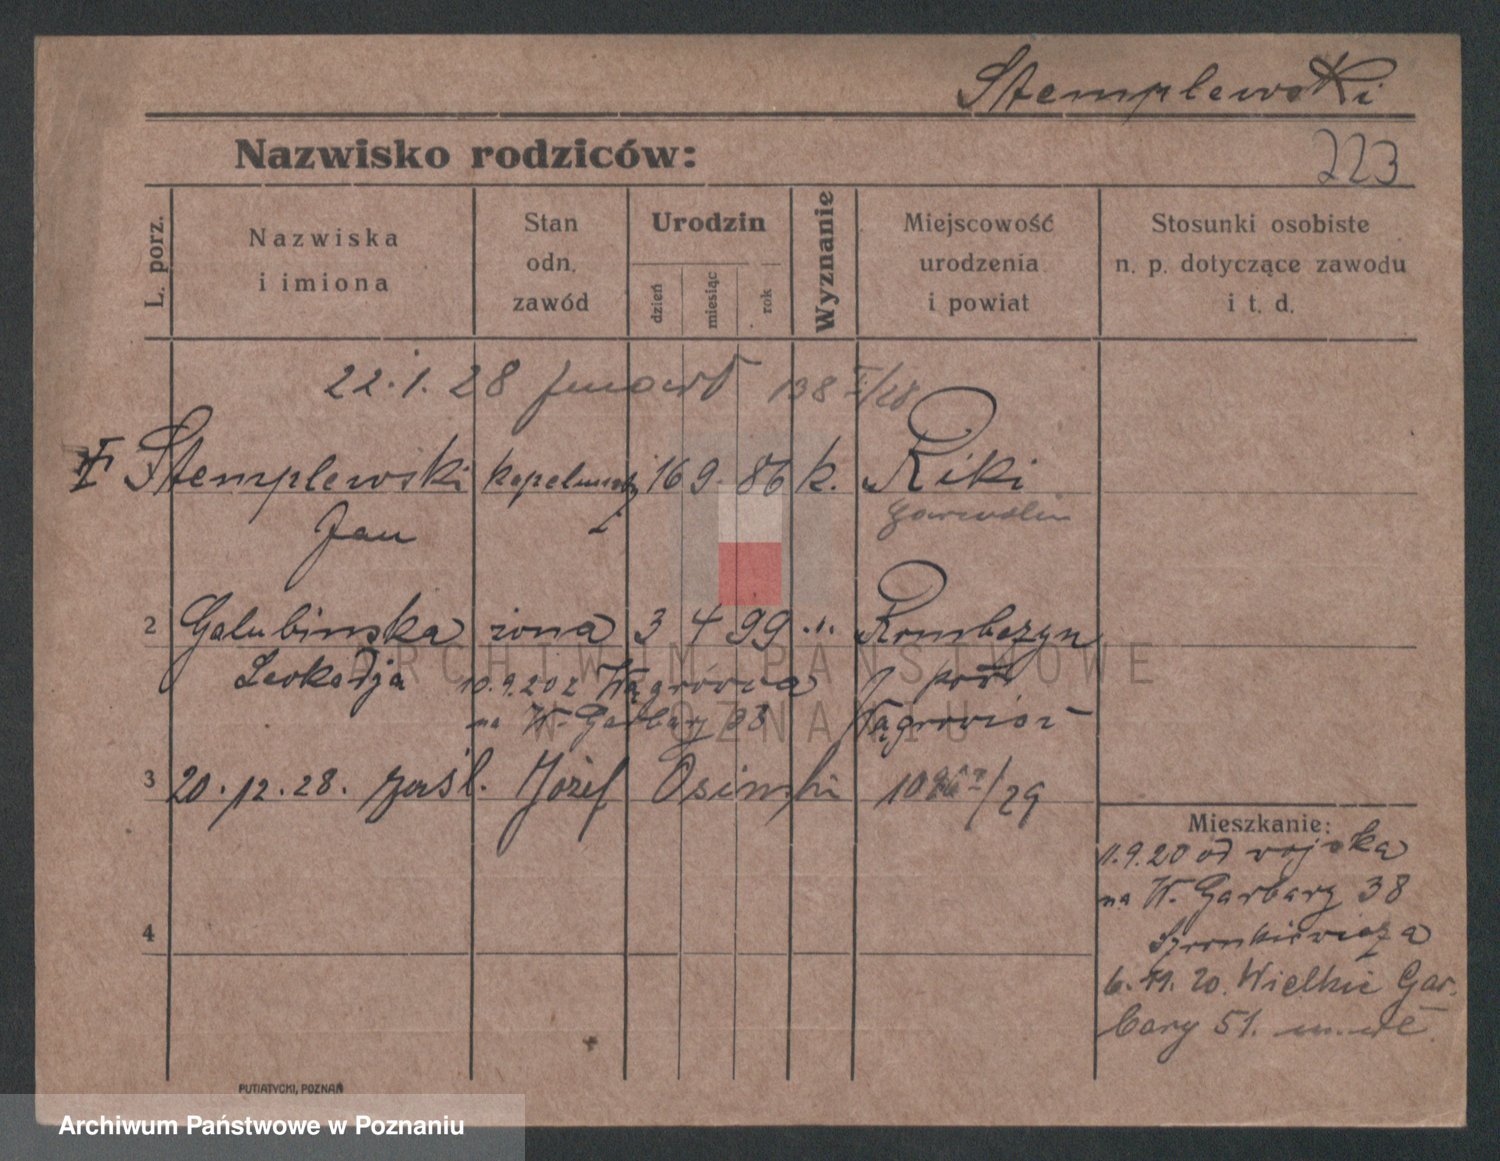 Stemplewski
223
Nazwisko rodziców:
L. porz.
Nazwiska
i imiona
Stan
odn.
zawód
Urodzin
dzień
miesiąc
rok
Wyznanie
Miejscowość
urodzenia
i powiat
Stosunki osobiste
n. p. dotyczące zawodu
i t. d.
22.1.28 138 /28
Stemplewski 16 9. 86 k. Riki
Jan garwolin
2 Galubinska żona 3 4 99 .ıı. Rombczyn
Leokadja 10.9.20 z Wągrówca
na W. Garbary 38 Wągrowiec
3 20.12.28. Józef Osinski /29
4
Mieszkanie:
11.9.20 od wojska
na W. Garbary 38
6.11.20. Wielkie Gar-
bary 51.
PUTIATYCKI, POZNAŃ
ARCHIWUM PAŃSTWOWE
W POZNANIU
Archiwum Państwowe w Poznaniu